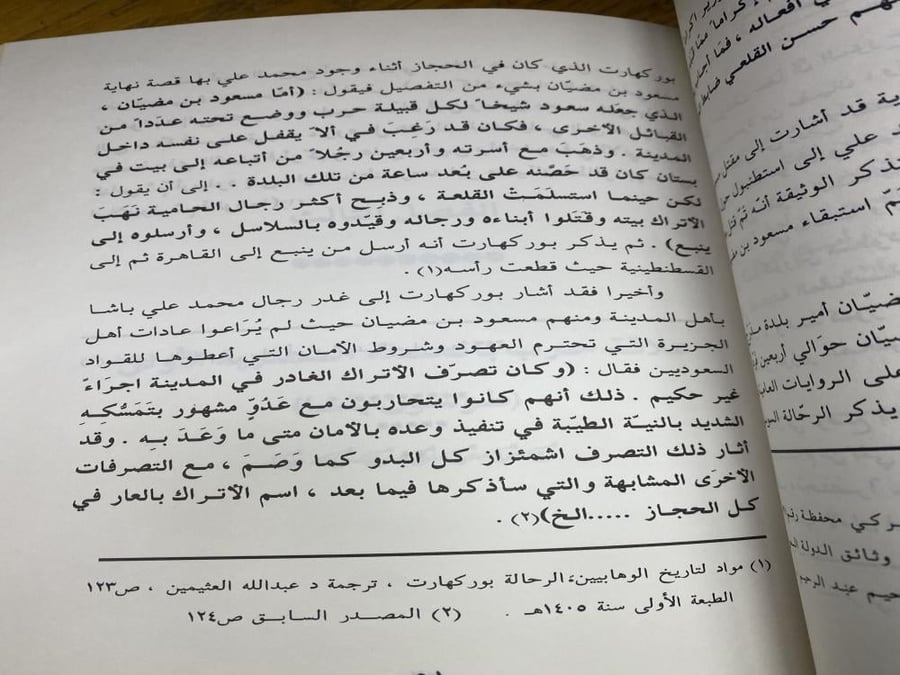 بوركهارت الذي كان في الحجاز أثناء وجود محمد علي بها قصة نهاية
مسعود بن مضيّان بشيء من التفصيل فيقول : (أمّا مسعود بن مضيّان ،
الذي جعله سعود شيخاً لكل قبيلة حرب ووضع تحته عدداً من
القبائل الآخرى ، فكان قد رَغِبَ في ألا يقفل على نفسه داخل
المدينة . وذهَبَ مع أسرته وأربعين رجُلاً من أتباعه إلى بيت في
بستان كان قد حَصّنه على بُعد ساعة من تلك البلدة . . إلى أن يقول :
لكن حينما استسلَمَتْ القلعة ، وذبح أكثر رجال الحامية نَهَبَ
الآتراك بيته وقتَلوا أبناءه ورجاله وقيّدوه بالسلاسل ، وأرسلوه إلى
ينبع) . ثم يذكر بوركهارت أنه أرسل من ينبع إلى القاهرة ثم إلى
القسطنطينية حيث قطعت رأسه(١) .
وأخيرا فقد أشار بوركهارت إلى غدر رجال محمد علي باشا
بأهل المدينة ومنهم مسعود بن مضيان حيث لم يُرَاعوا عادات أهل
الجزيرة التي تحترم العهود وشروط الأمان التي أعطوها للقواد
السعوديين فقال : (وكان تصرّف الآتراك الغادر في المدينة اجراءً
غير حكيم . ذلك أنهم كانوا يتحاربون مع عَدُوٍّ مشهور بتَمَسُّكِهِ
الشديد بالنيـّة الطيّبة في تنفيذ وعده بالآمان متى ما وَعَدَ بِهِ . وقد
أثار ذلك التصرف اشمئزاز كل البدو كما وَصَمَ ، مع التصرفات
الآخرَى المشابهة والتي سأذكرها فيما بعد ، اسم الآتراك بالعار في
كل الحجاز .....الخ)(٢) .
(١) مواد لتاريخ الوهابيين، الرحالة بوركهارت ، ترجمة د عبدالله العثيمين ، ص١٢٣
الطبعة الأولى سنة ١٤٠٥هـ . (٢) المصدر السابق ص١٢٤
أفعاله ، فما
حسن القلعي
قد أشارت إلى مقتل
علي إلى استطنبول
تذكر الوثيقة أنه تَمّ
استبقاء مسعود بن
ضيّان أمير بلدة
حوالي أربعين
على الروايات
يذكر الرحّالة
تركي محفظة
وثائق الدولة
عبد